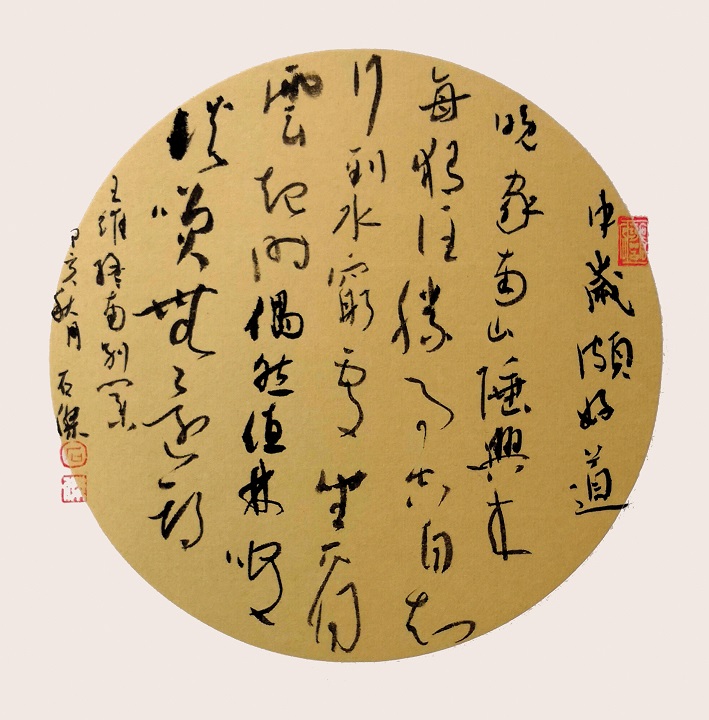 中歲頗好道
晚家南山陲興來
每獨往勝事空自知
行到水窮處坐看
雲起時偶然值林叟
談笑無還期
王維終南別業
己亥秋月石傑